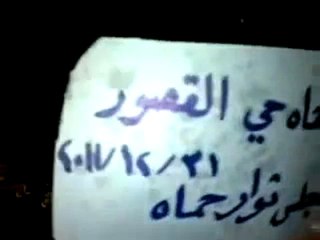 حماه حي القصور
٢٠١١/١٢/٣١
مجلس ثوار حماه